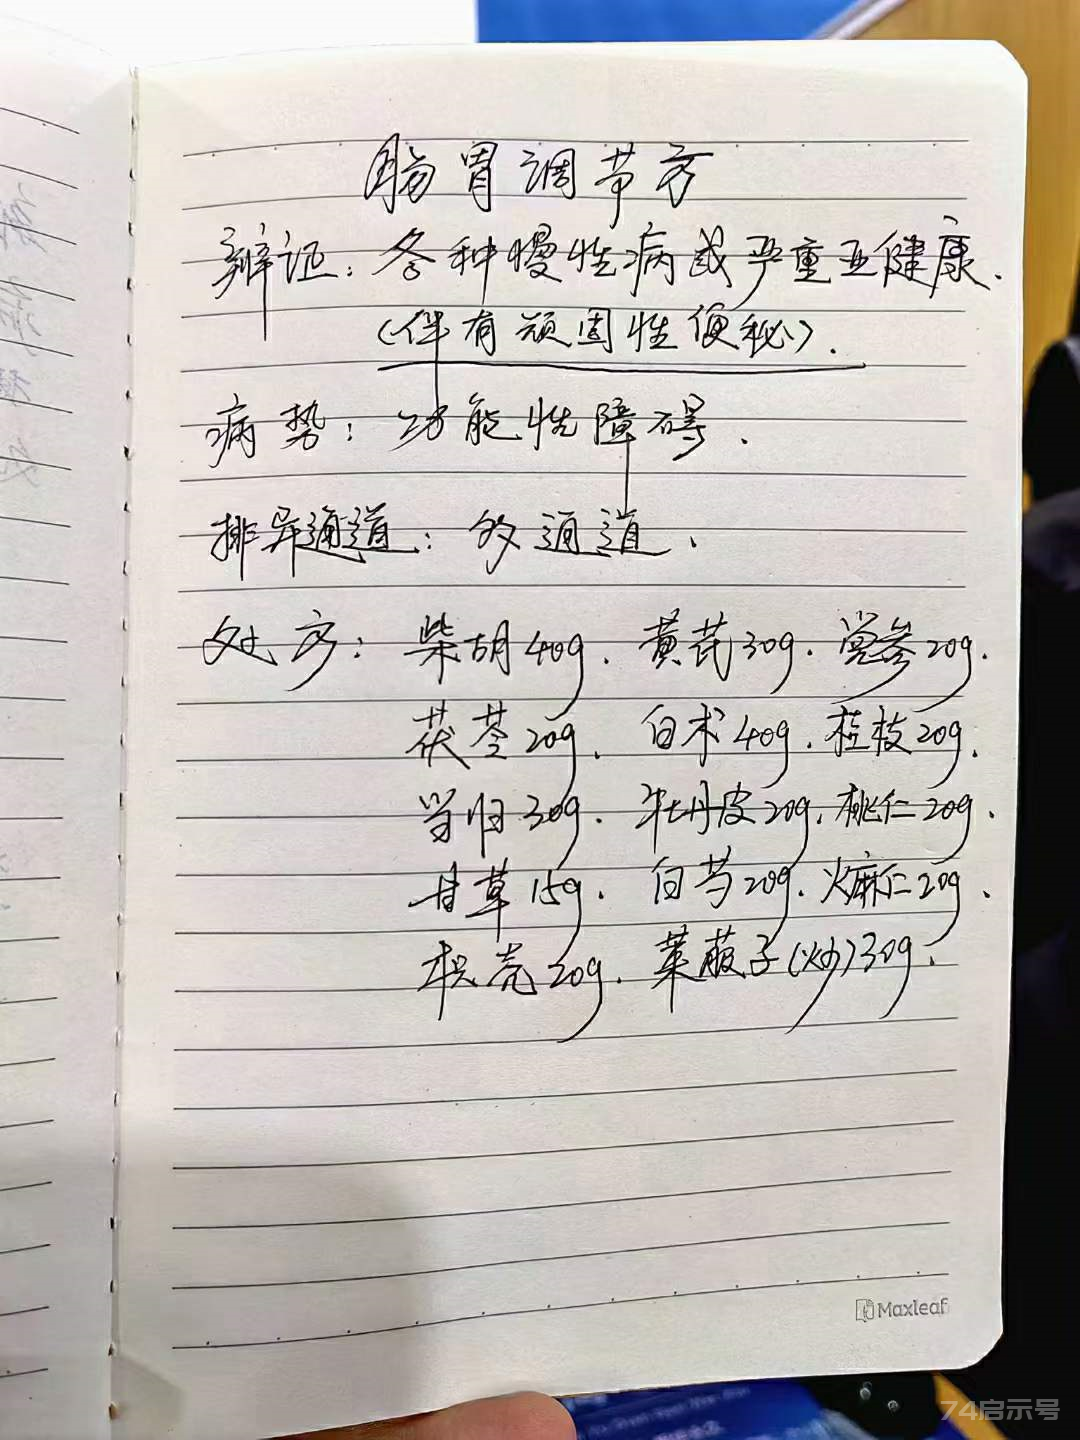 肠胃调节方
辩证：各种慢性病或严重亚健康.
(伴有顽固性便秘).
病势：功能性障碍.
排异通道：多通道.
处方：柴胡40g. 黄芪30g. 党参20g.
茯苓20g. 白术40g. 桂枝20g.
当归30g. 牡丹皮20g. 桃仁20g.
甘草15g. 白芍20g. 火麻仁20g.
枳壳20g. 莱菔子(炒)30g.
Maxleaf
74启示号